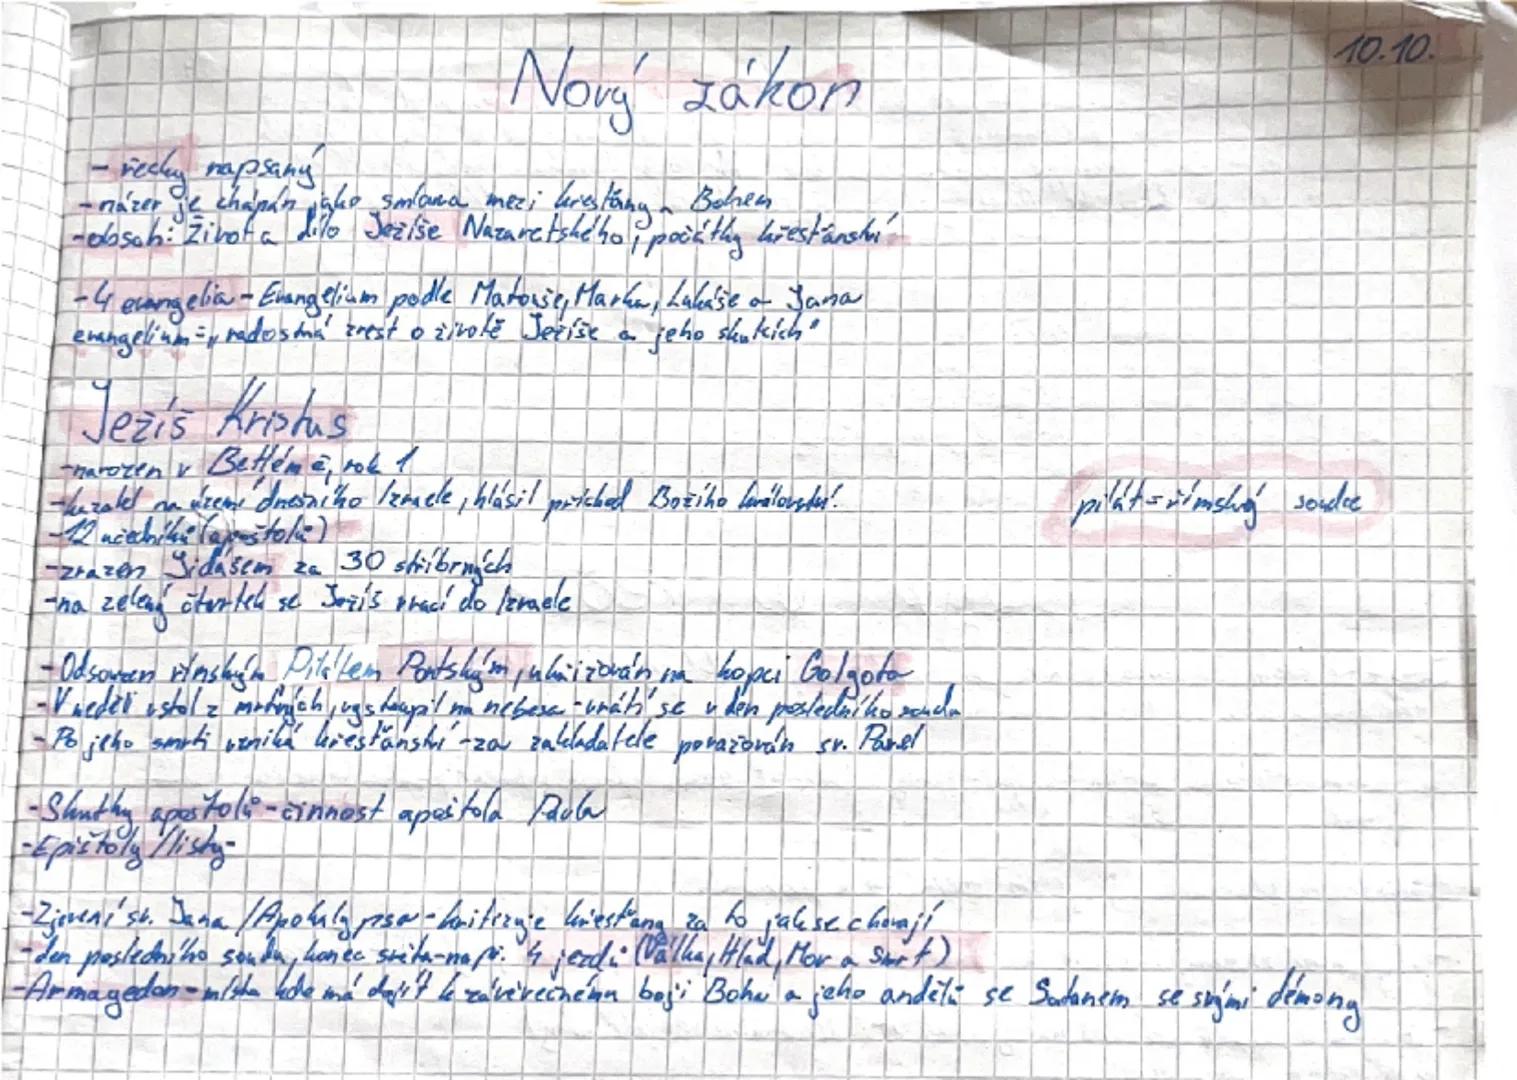 10.10.
Nový zákon
- řecky napsaný
- název je chápán jako smlouva mezi křesťany a Bohem
- obsah: Život a dílo Ježíše Nazaretského, počátky křesťanství
- 4 evangelia - Evangelium podle Matouše, Marka, Lukáše a Jana
evangelium = „radostná zvěst o životě Ježíše a jeho skutkích"
Ježíš Kristus
- narozen v Betlémě, rok 1
- kázal na území dnešního Izraele, hlásil příchod Božího království.
pilát = římský soudce
- 12 učedníků (apoštolů)
- zrazen Jidášem za 30 stříbrných
- na zelený čtvrtek se Ježíš vrací do Izraele
- Odsouzen římským Pilátem Pontským, ukřižován na kopci Golgota
- V neděli vstal z mrtvých, vystoupil na nebesa - vrátí se v den posledního soudu
- Po jeho smrti vzniká křesťanství - za zakladatele považován sv. Pavel
- Skutky apoštolů - činnost apoštola Pavla
- Epištoly / listy -
- Zjevení sv. Jana / Apokalypsa - kritizuje křesťany za to jak se chovají
- den posledního soudu, konec světa - např. 4 jezdci (Válka, Hlad, Mor a Smrt)
- Armagedon - místo kde má dojít k závěrečnému boji Boha a jeho andělů se Satanem se svými démony